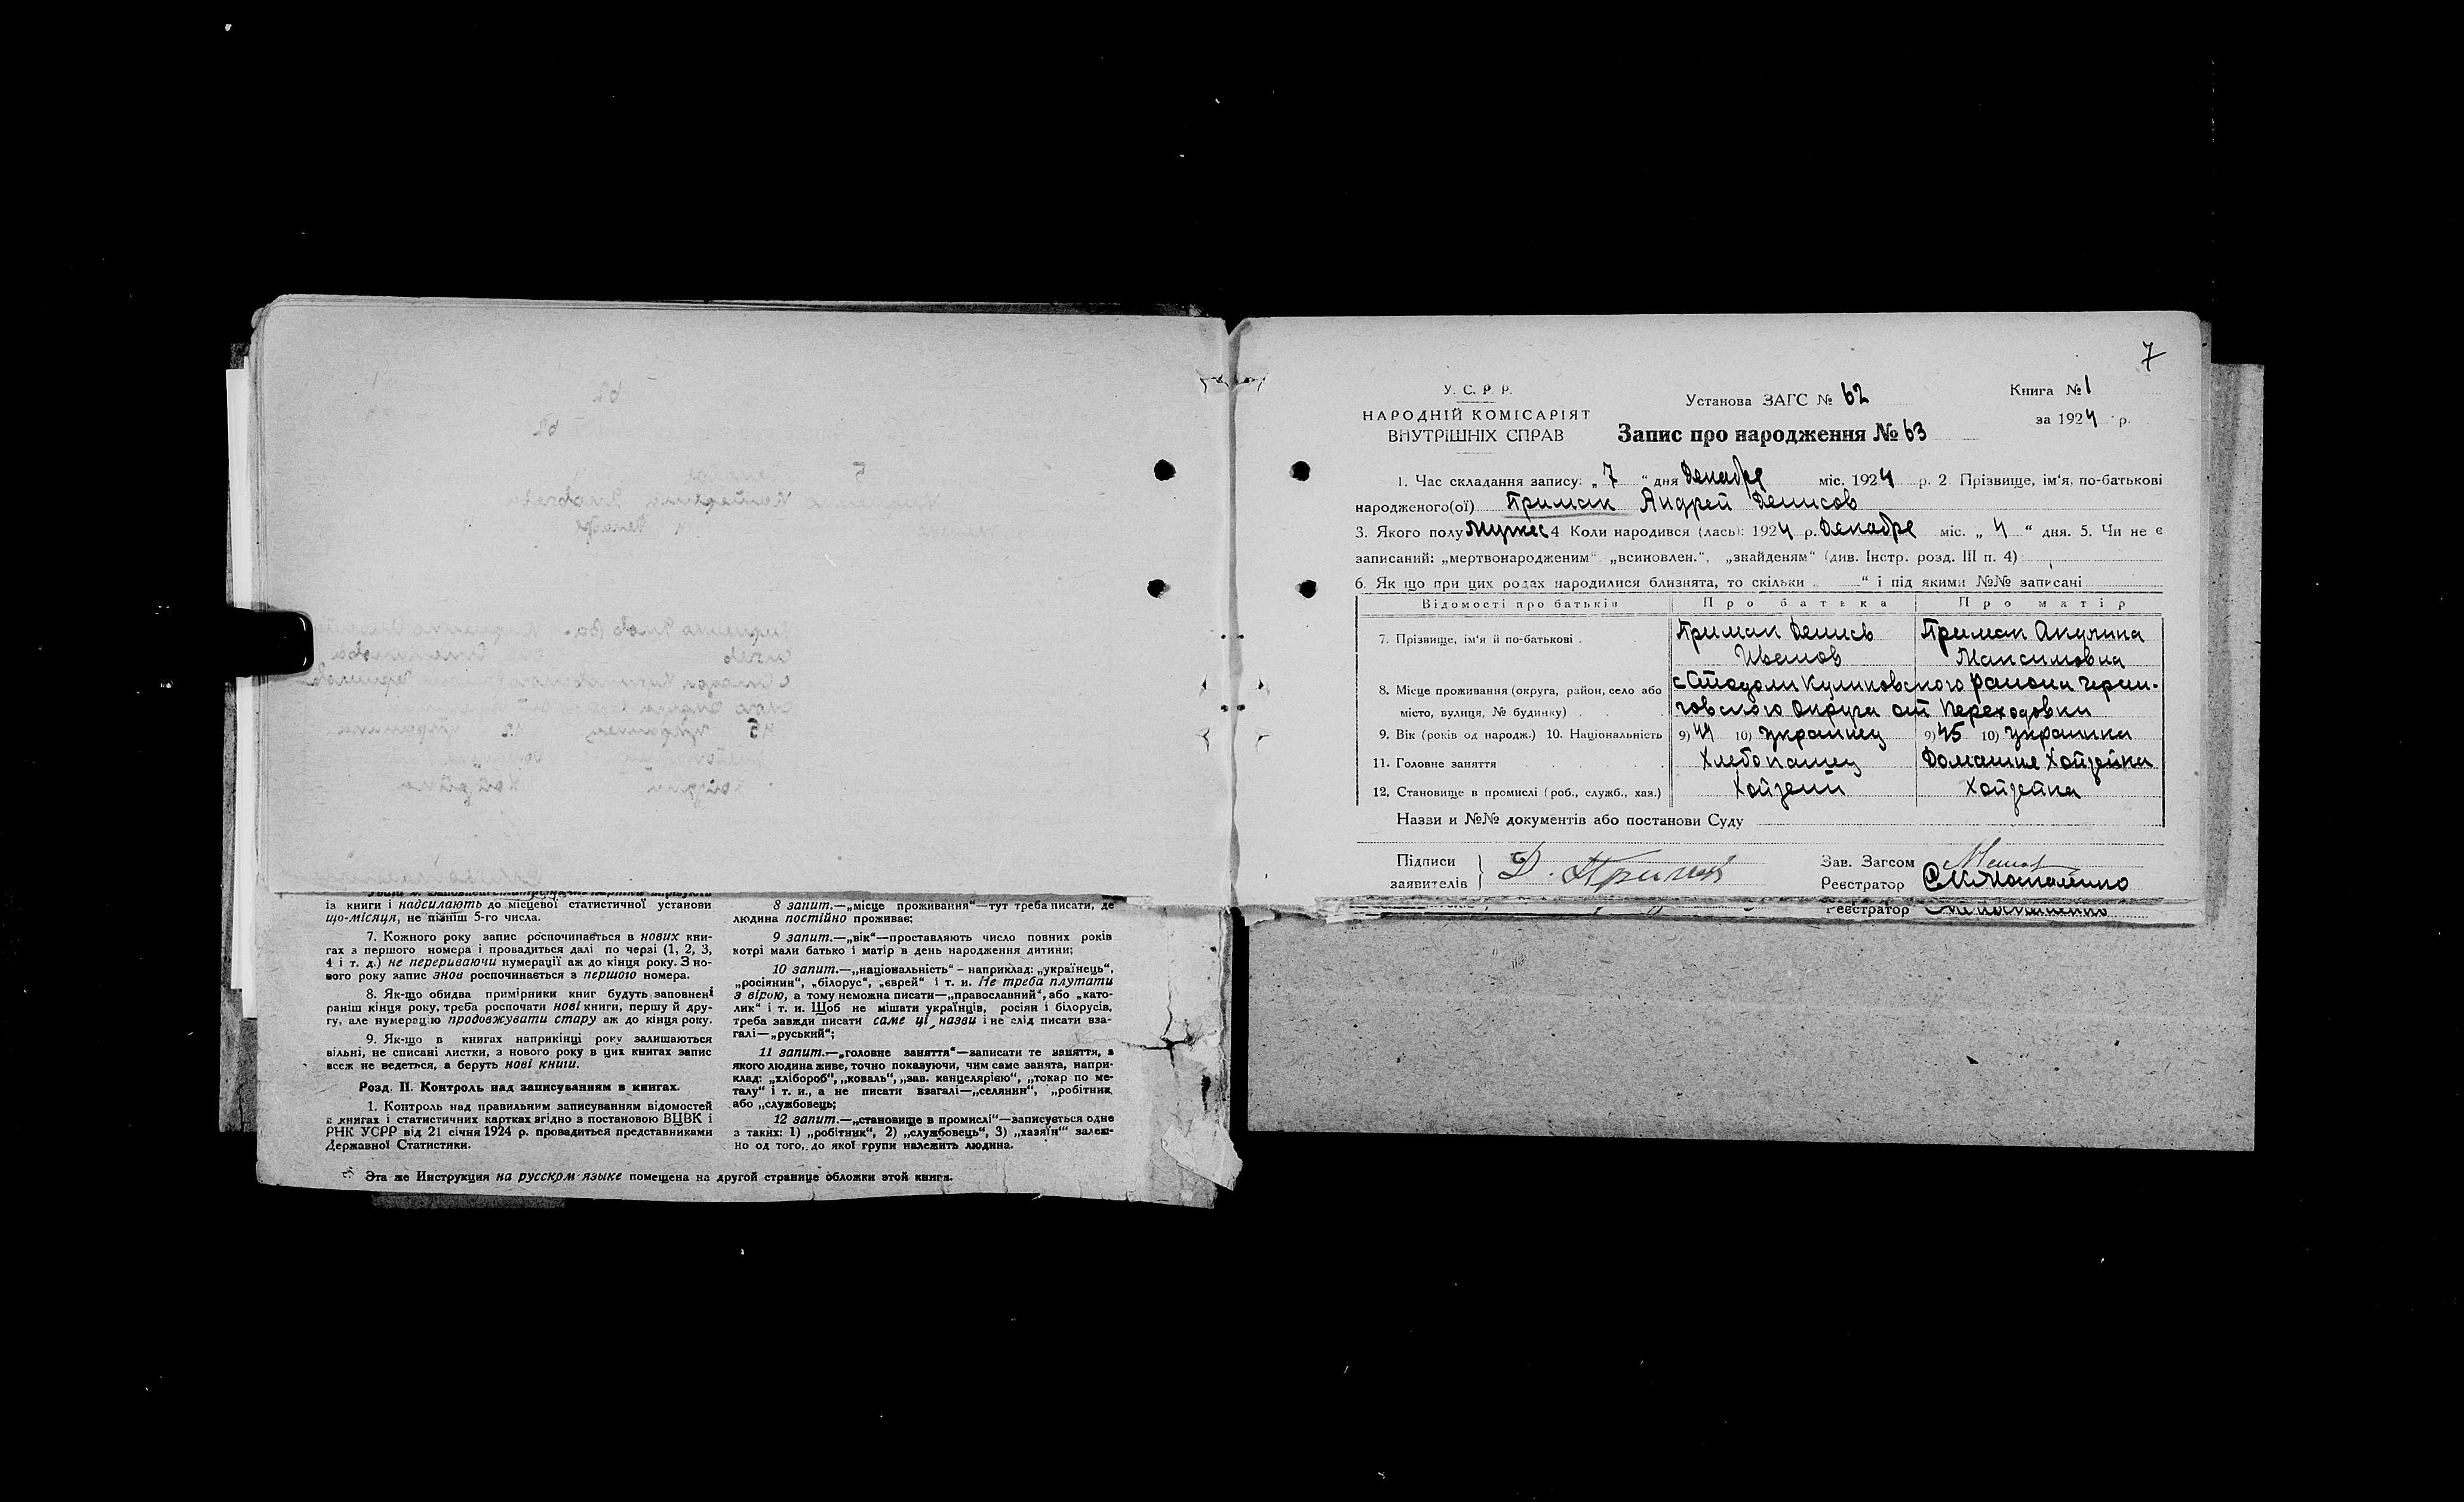 із книги і надсилають до місцевої статистичної установи
що-місяця, не пізніш 5-го числа.
7. Кожного року запис розпочинається в нових кни-
гах з першого номера і провадиться далі по черзі (1, 2, 3,
4 і т. д.) не перериваючи нумерації аж до кінця року. З но-
вого року запис знов роспочинається з першого номера.
8. Як-що обидва примірники книг будуть заповнені
раніш кінця року, треба роспочати нові книги, першу й дру-
гу, але нумерацію продовжувати стару аж до кінця року.
9. Як-що в книгах наприкінці року залишаються
вільні, не списані листки, з нового року в цих книгах запис
всеж не ведеться, а беруть нові книги.
Розд. II. Контроль над записуванням в книгах.
1. Контроль над правильним записуванням відомостей
в книгах і статистичних картках згідно з постановою ВЦВК і
РНК УСРР від 21 січня 1924 р. провадиться представниками
Державної Статистики.
8 запит.—„місце проживання“—тут треба писати, де
людина постійно проживає;
9 запит.—„вік“—проставляють число повних років
котрі мали батько і матір в день народження дитини;
10 запит.—„національність“ – наприклад: „українець“,
„росіянин“, „білорус“, „єврей“ і т. и. Не треба плутати
з вірою, а тому неможна писати—„православний“, або „като-
лик“ і т. и. Щоб не мішати українців, росіян і білорусів,
треба завжди писати саме ці назви і не слід писати вза-
галі—„руський“;
11 запит.—„головне заняття“—записати те заняття, з
якого людина живе, точно показуючи, чим саме занята, напри-
клад: „хлібороб“, „коваль“, „зав. канцелярією“, „токар по ме-
талу“ і т. и., а не писати взагалі—„селянин“, „робітник
або „службовець;
12 запит.—„становище в промислі“—записується одне
з таких: 1) „робітник“, 2) „службовець“, 3) „хазяїн“ залеж-
но од того, до якої групи належить людина.
Эта же Инструкция на русском языке помещена на другой странице обложки этой книги.
7
У. С. Р. Р.
НАРОДНІЙ КОМІСАРІЯТ
ВНУТРІШНІХ СПРАВ
Установа ЗАГС № 62
Книга № 1
за 1924 р.
Запис про народження № 63
1. Час складання запису: „ 7 “ дня Декабря міс. 1924 р. 2 Прізвище, ім'я, по-батькові
народженого(ої) Примак Андрей Денисов
3. Якого полу мужес 4 Коли народився (лась): 1924 р. Декабря міс. „ 4 “ дня. 5. Чи не є
записаний: „мертвонародженим“ „всиновлен.“, „знайденям“ (див. Інстр. розд. III п. 4)
6. Як що при цих родах народилися близнята, то скільки „ “ і під якими №№ записані
Відомості про батьків Про батька Про матір
7. Прізвище, ім'я й по-батькові Примак Денис Примак Акулина
Иванов Максимовна
8. Місце проживання (округа, район, село або с Стодоли Куликовского района Черни-
місто, вулиця, № будинку) говского округа от Переходовки
9. Вік (років од народж.) 10. Національність 9) 44 10) Украинец 9) 45 10) Украинка
11. Головне заняття Хлебопашец Домашне Хозяйка
12. Становище в промислі (роб., служб., хаз.) Хойзеин Хойзейка
Назви и №№ документів або постанови Суду
Підписи
заявителів
Д. Примак
Зав. Загсом
Реєстратор
Реєстратор